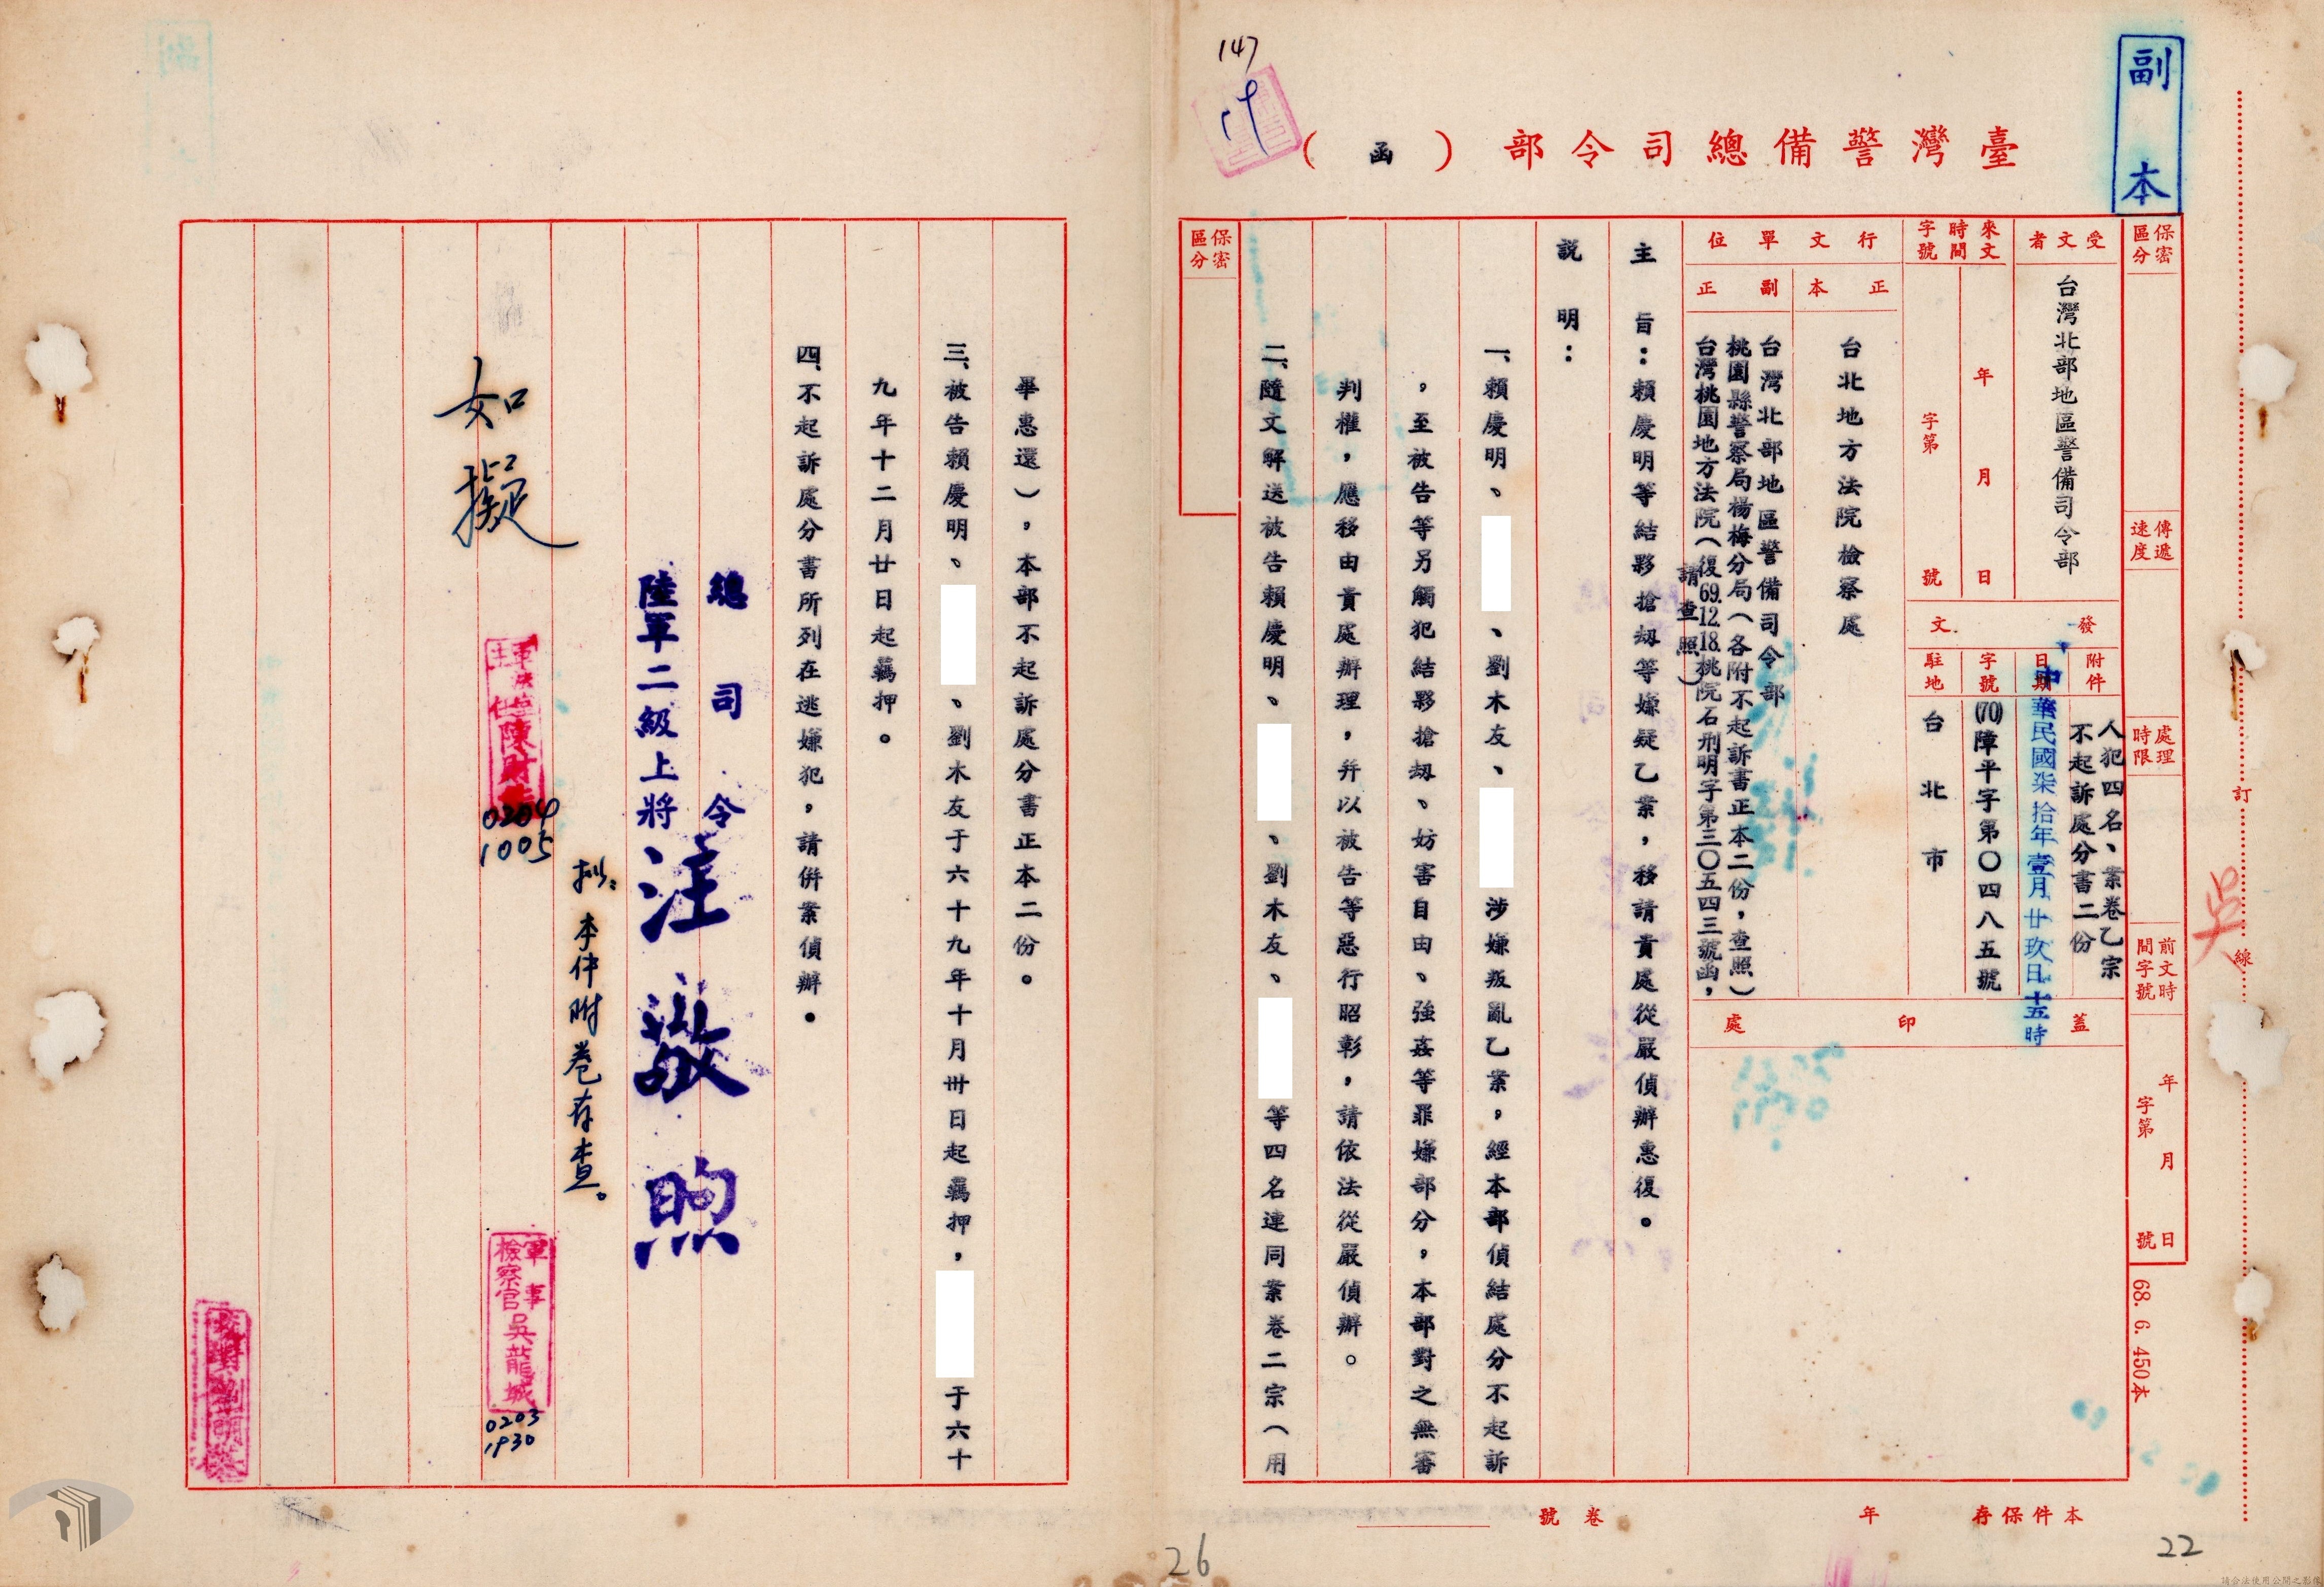 副本
147
臺灣警備總司令部（函）
保密區分
傳遞速度
處理時限
前文時間字號
年月日
字第號
受文者
台灣北部地區警備司令部
來文時間字號
年月日
字第號
發文
附件
人犯四名、案卷乙宗
不起訴處分書二份
日期
中華民國柒拾年壹月廿玖日十五時
字號
(70)障平字第〇四八五號
駐地
台北市
行文單位
正本
台北地方法院檢察處
副正
台灣北部地區警備司令部
桃園縣警察局楊梅分局（各附不起訴書正本二份，查照）
台灣桃園地方法院（復69.12.18.桃院石刑明字第三〇五四三號函，
請查照）
蓋印處
主旨：賴慶明等結夥搶刼等嫌疑乙案，移請貴處從嚴偵辦惠復。
説明：
一、賴慶明、、劉木友、涉嫌叛亂乙案，經本部偵結處分不起訴
，至被告等另觸犯結夥搶刼、妨害自由、強姦等罪嫌部分，本部對之無審
判權，應移由貴處辦理，幷以被告等惡行昭彰，請依法從嚴偵辦。
二、隨文解送被告賴慶明、、劉木友、等四名連同案卷二宗（用
保密區分
訂線
吳
68. 6. 450本
本件保存年
卷號
22
畢惠還），本部不起訴處分書正本二份。
三、被告賴慶明、、劉木友于六十九年十月卅日起羈押，于六十
九年十二月廿日起羈押。
四、不起訴處分書所列在逃嫌犯，請併案偵辦。
總司令
陸軍二級上將汪敬煦
擬：本件附卷存查。
軍事檢察官吳龍城
0203
1930
如擬
0204
1005
26
請合法使用公開之影像